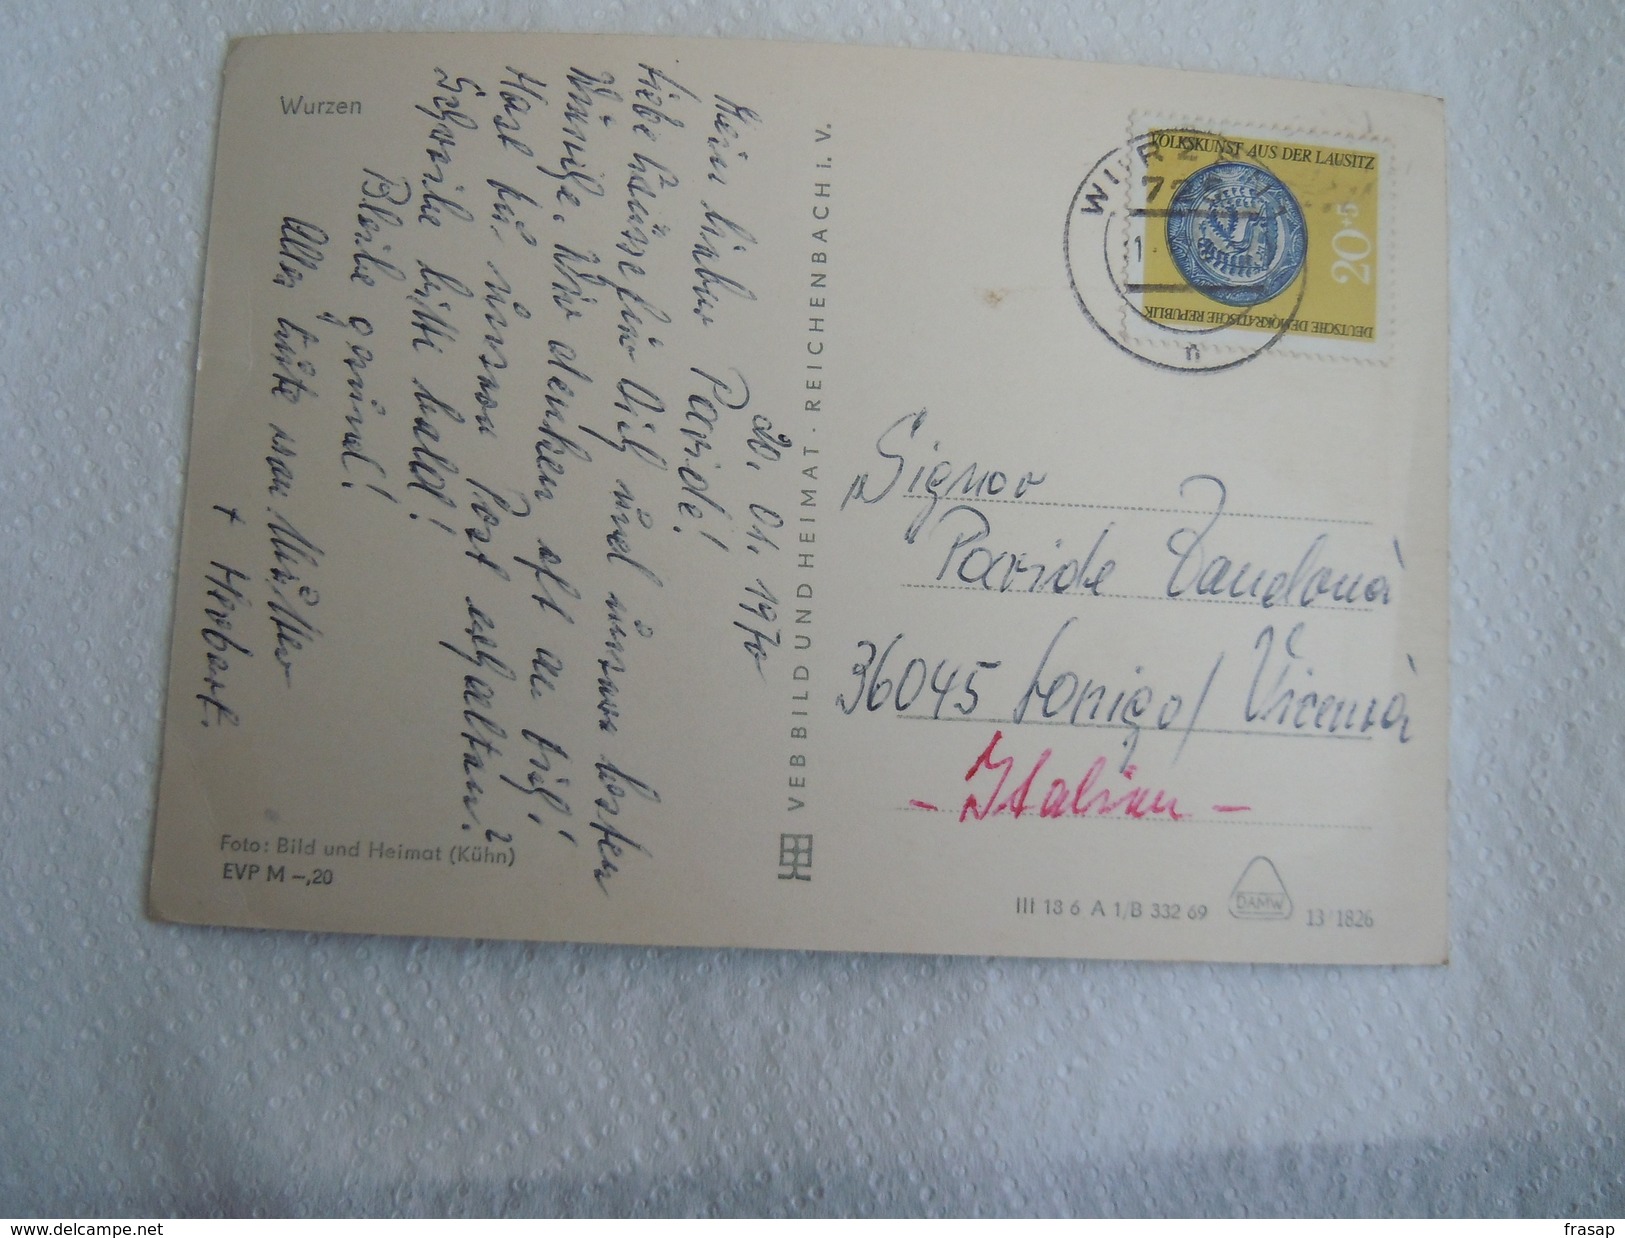 Wurzen
20. 01. 1970
Mein lieber Pavide!
Liebe Grüsse für Dich und unsere besten
Wünsche. Wir denken oft an Dich!
Hast du unsere Post erhalten?
Schreibe bitte bald!
Bleibe gesund!
Alles Gute von Mutter
+ Herbert.
Foto: Bild und Heimat (Kühn)
EVP M –,20
VEB BILD UND HEIMAT · REICHENBACH I. V.
WURZEN
VOLKSKUNST AUS DER LAUSITZ
20+5
DEUTSCHE DEMOKRATISCHE REPUBLIK
Signor
Pavide Zandonà
36045 Lonigo/ Vicenza
- Italien -
III 18 6 A 1/B 332 69
DAMW
13/1826
www.delcampe.net
frasap